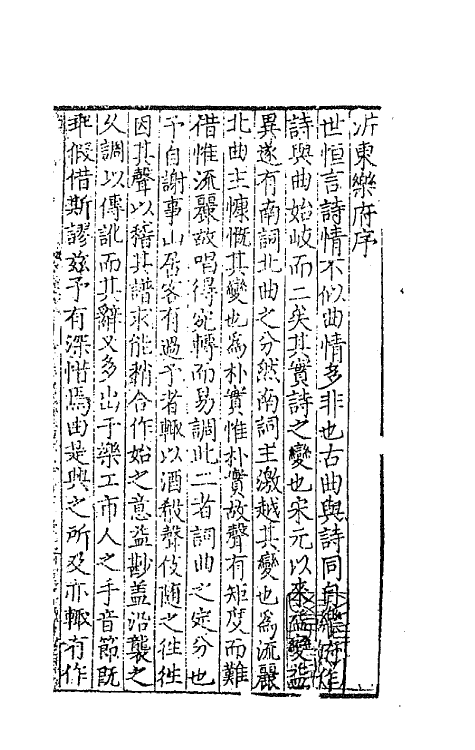 沜東樂府序
世恒言詩情不似曲情多非也古曲與詩同自樂府作
詩與曲始岐而二矣其實詩之變也宋元以來益變益
異遂有南詞北曲之分然南詞主激越其變也為流麗
北曲主慷慨其變也為朴實惟朴實故聲有矩度而難
借惟流麗故唱得宛轉而易調此二者詞曲之定分也
予自謝事山居客有過予者輒以酒殽聲伎随之往徃
因其聲以稽其譜求能稍合作始之意益尠盖沿襲之
乆調以傳訛而其辭又多出于樂工市人之手音節既
乖假借斯謬兹予有深惜焉由是興之所及亦輒有作